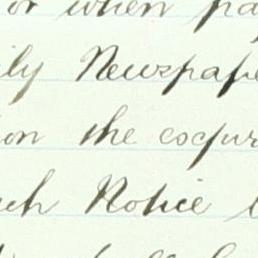 or when pa
ily Newspape
ion the expir
uch Notice